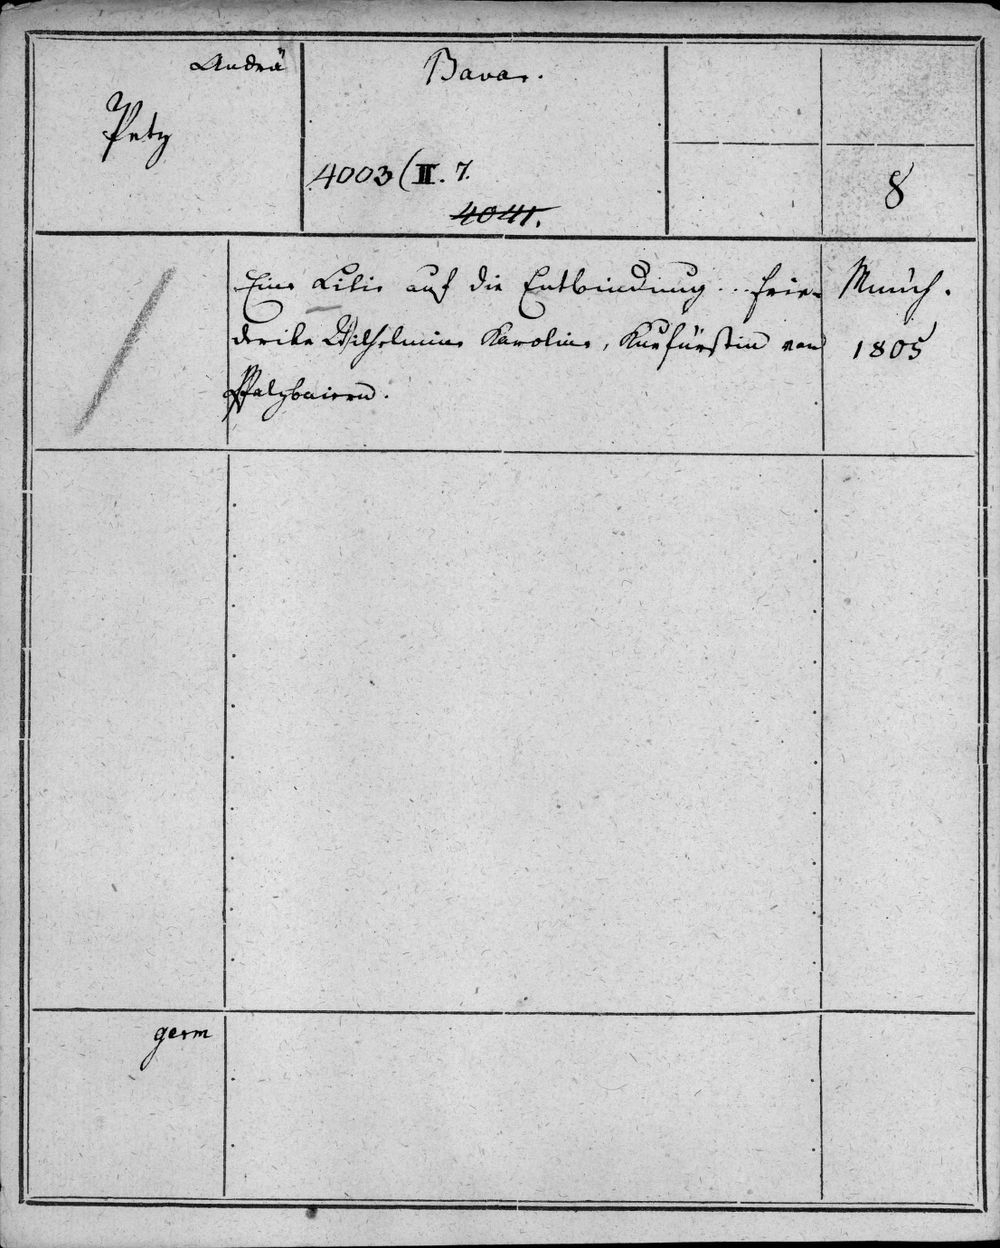 Andrä
Petz
Bavar.
4003 (II. 7.
4041.
8
Eine Lilie auf die Entbindung ... Frie-
derike Wilhelmine Karoline, Kurfürstin von
Pfalzbaiern.
Münch.
1805
germ